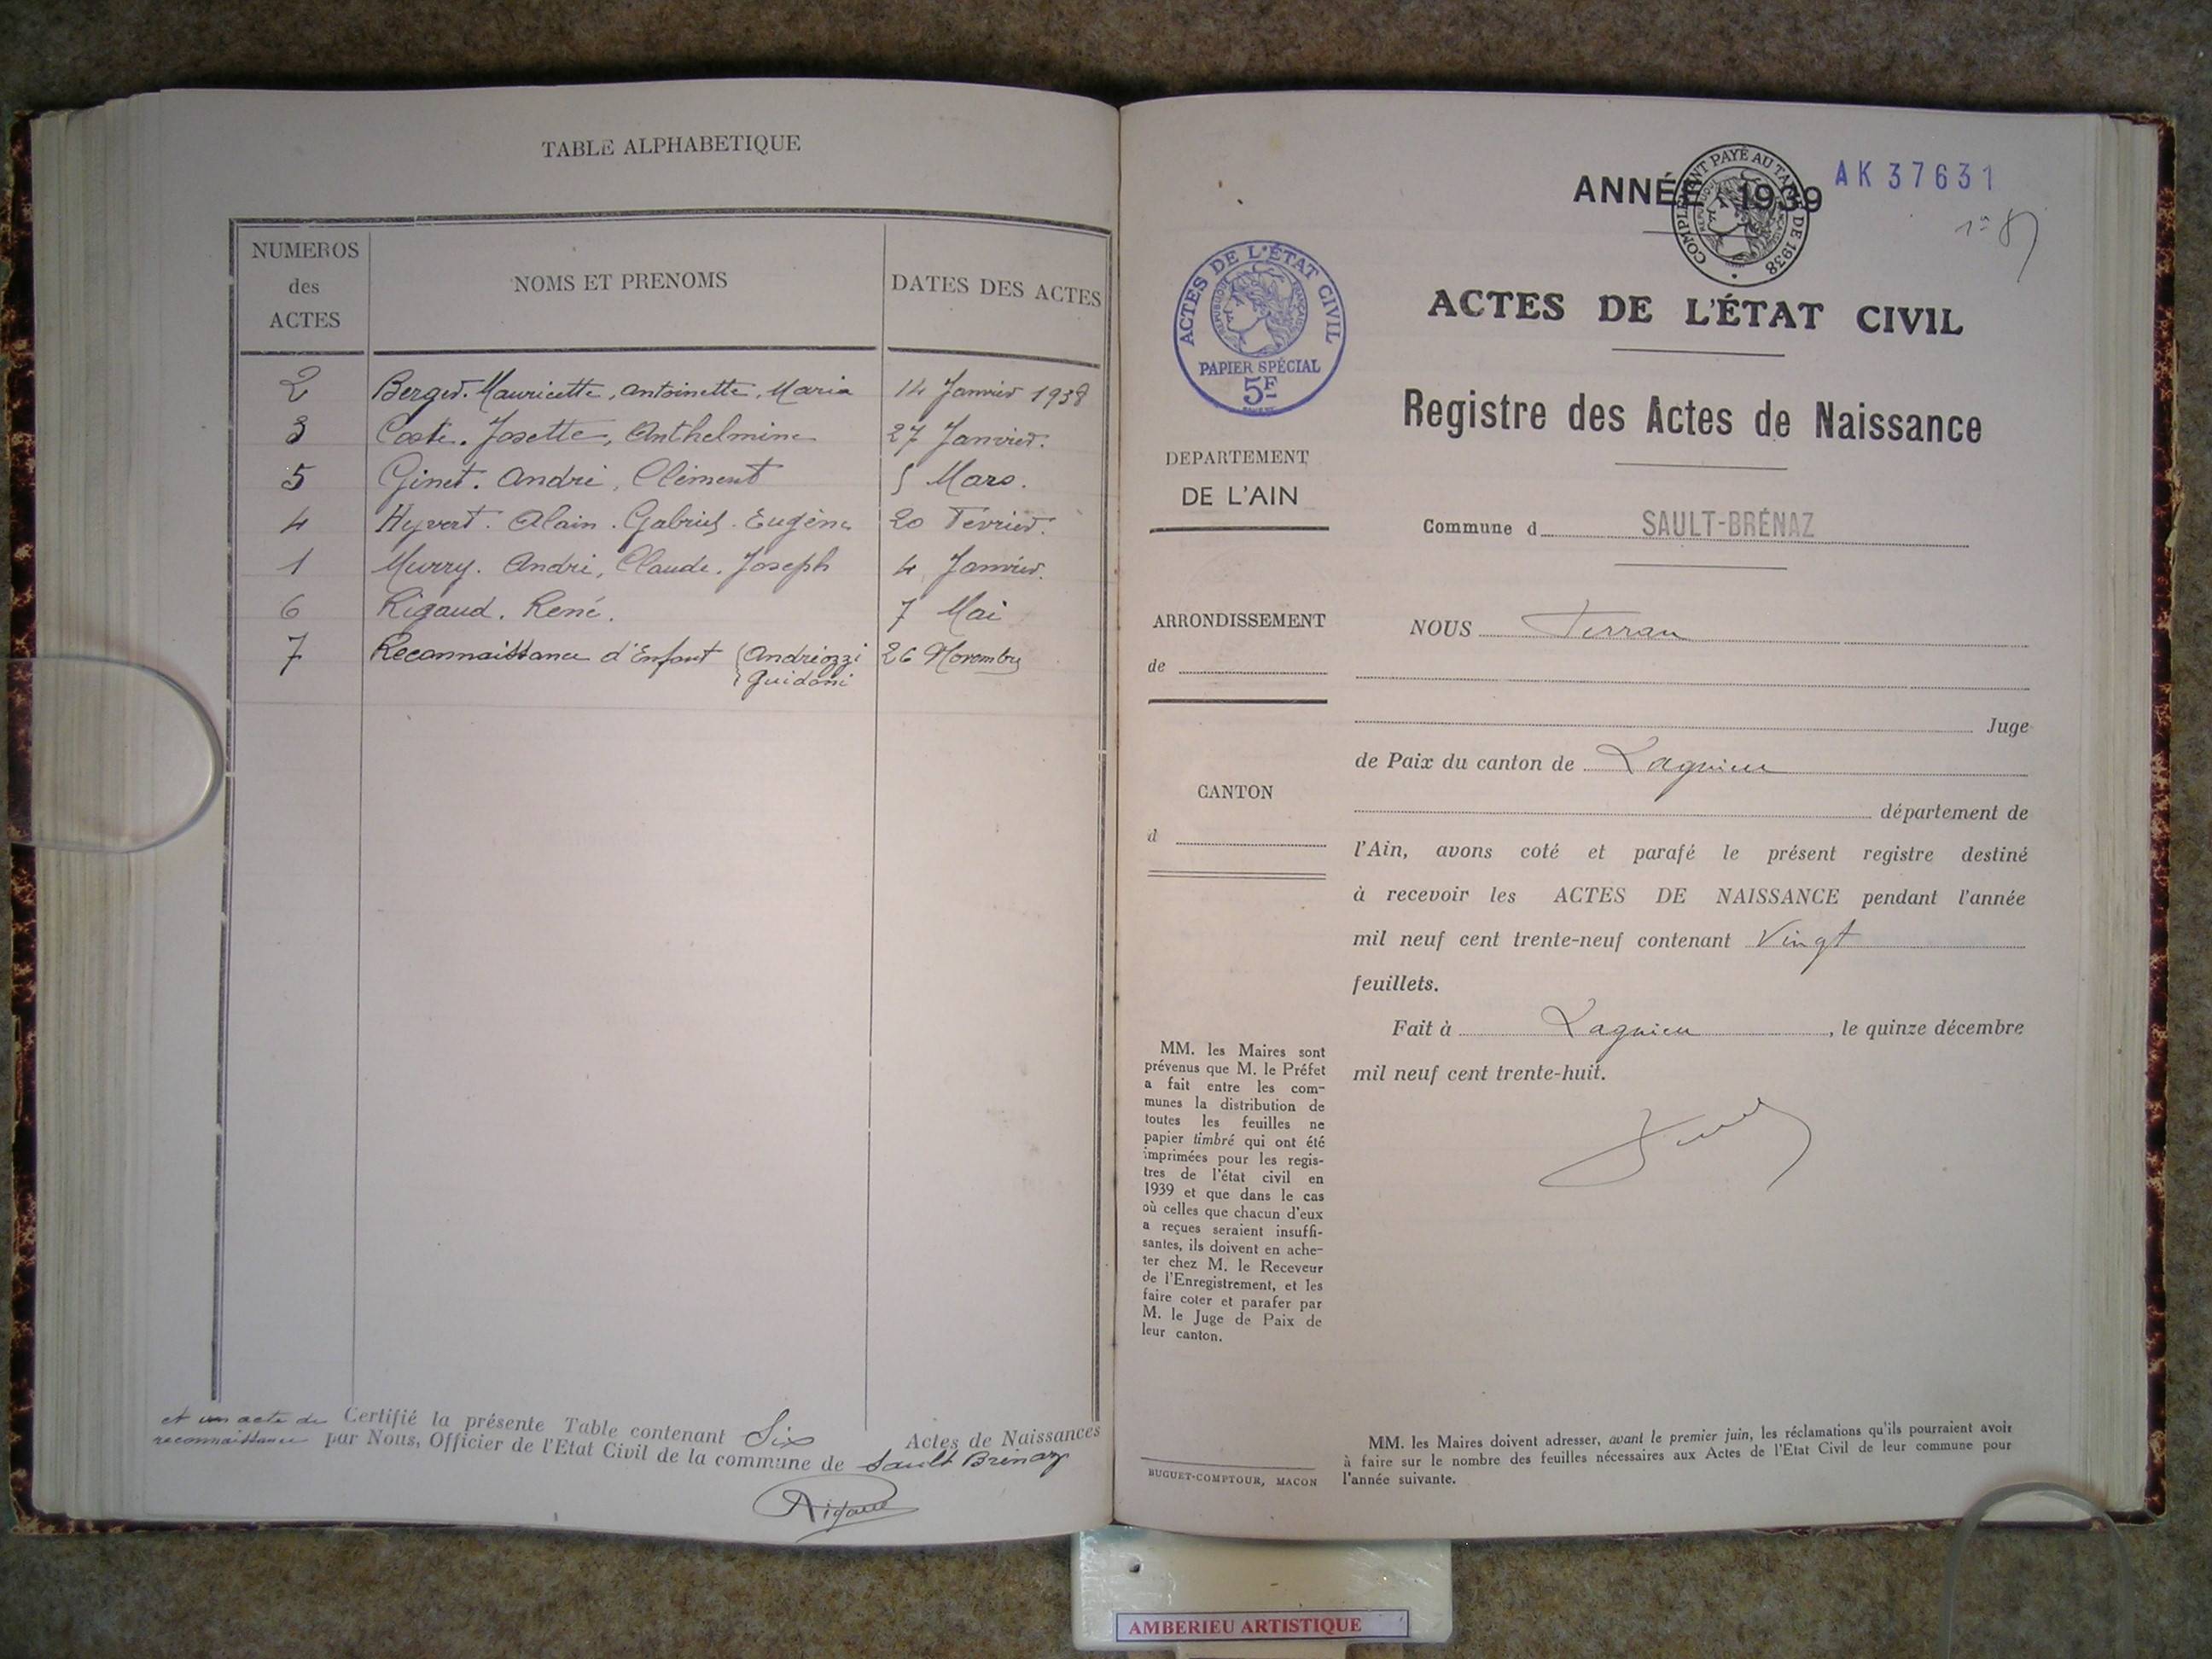 TABLE ALPHABETIQUE
NUMEROS
des
ACTES
NOMS ET PRENOMS
DATES DES ACTES
2 Berger. Mauricette, Antoinette, Maria 14 Janvier 1938
3 Coste. Josette, Anthelmine 27 Janvier.
5 Ginet. André, Clément 5 Mars.
4 Hyvert. Alain. Gabriel. Eugène 20 Février.
1 Murry. André, Claude. Joseph 4 Janvier.
6 Rigaud. René. 7 Mai
7 Reconnaissance d'Enfant (Andréozzi 26 Novembre
Guidoni
et un acte de
reconnaissance
Certifié la présente Table contenant Six Actes de Naissances
par Nous, Officier de l'Etat Civil de la commune de Sault Brénaz
Rigaud
ANNÉE 1939
COMPLEMENT PAYÉ AU TARIF DE 1938
AK 37631
ACTES DE L'ÉTAT CIVIL
REPUBLIQUE FRANÇAISE
PAPIER SPÉCIAL
5F
ACTES DE L'ÉTAT CIVIL
Registre des Actes de Naissance
DEPARTEMENT
DE L'AIN
Commune d SAULT-BRÉNAZ
ARRONDISSEMENT
de
CANTON
d
NOUS Ferran
Juge
de Paix du canton de Lagnieu
département de
l'Ain, avons coté et parafé le présent registre destiné
à recevoir les ACTES DE NAISSANCE pendant l'année
mil neuf cent trente-neuf contenant Vingt
feuillets.
Fait à Lagnieu, le quinze décembre
mil neuf cent trente-huit.
MM. les Maires sont
prévenus que M. le Préfet
a fait entre les com-
munes la distribution de
toutes les feuilles ne
papier timbré qui ont été
imprimées pour les regis-
tres de l'état civil en
1939 et que dans le cas
où celles que chacun d'eux
a reçues seraient insuffi-
santes, ils doivent en ache-
ter chez M. le Receveur
de l'Enregistrement, et les
faire coter et parafer par
M. le Juge de Paix de
leur canton.
BUGUET-COMPTOUR, MACON
MM. les Maires doivent adresser, avant le premier juin, les réclamations qu'ils pourraient avoir
à faire sur le nombre des feuilles nécessaires aux Actes de l'Etat Civil de leur commune pour
l'année suivante.
AMBERIEU ARTISTIQUE